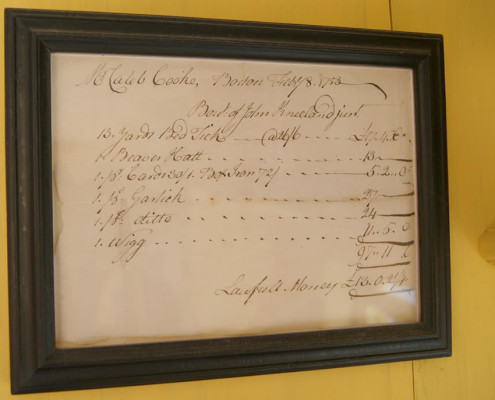 Mr Caleb Cooke, Boston Feby 8. 1753
Bowt of John Kneeland junr
13 Yards Bed Tick @ 26/6 £17.4.6
1 Beaver Hatt 13
1 pr Cards 30/ 1 Box Iron 72/ 5.2.0
1 ps Garlick 27
1 ps ditto 24
1 Wigg 11.5.0
97.11.6
Lawfull Money £13.0.2